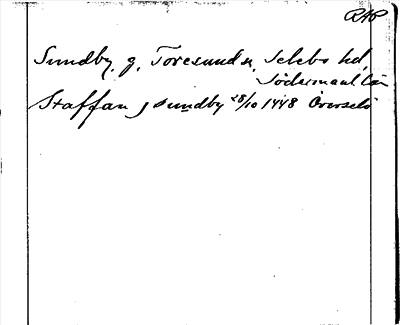 RAP
Sundby, g, Toresund sn, Selebo hd,
Södermanl. län
Staffan j sundby 28/10 1448 Överselö